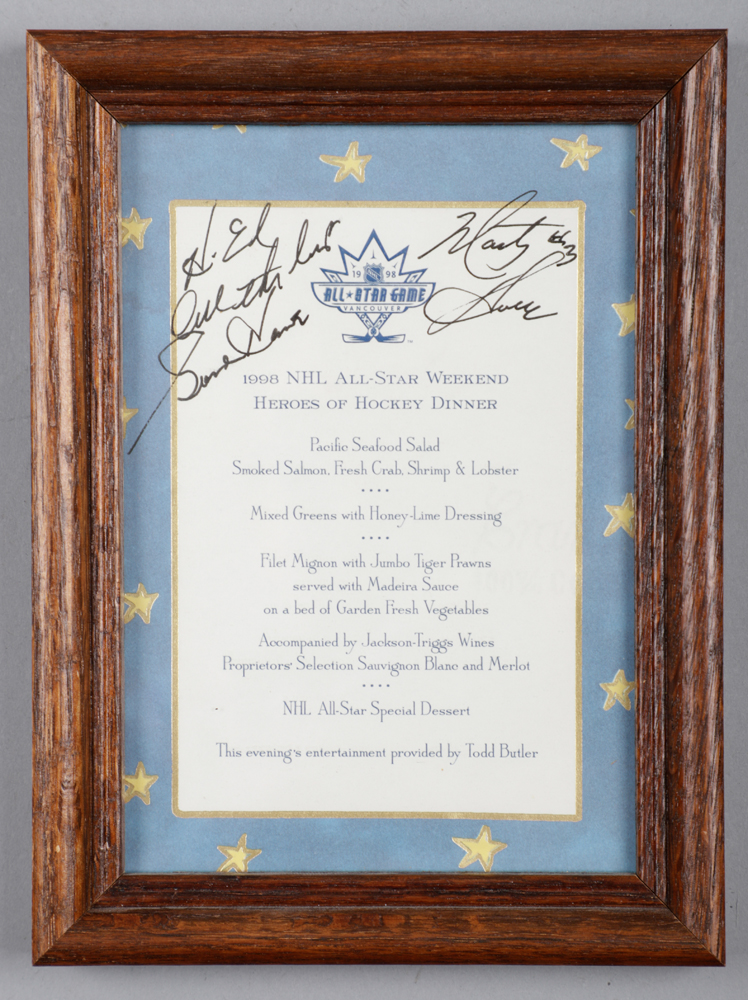 H. Ed
All the best
Gordie Howe
Marty #3
Howe
19 98
ALL★STAR GAME
VANCOUVER
1998 NHL All-Star Weekend
Heroes of Hockey Dinner
Pacific Seafood Salad
Smoked Salmon, Fresh Crab, Shrimp & Lobster
• • • •
Mixed Greens with Honey-Lime Dressing
• • • •
Filet Mignon with Jumbo Tiger Prawns
served with Madeira Sauce
on a bed of Garden Fresh Vegetables
Accompanied by Jackson-Triggs Wines
Proprietors' Selection Sauvignon Blanc and Merlot
• • • •
NHL All-Star Special Dessert
This evening's entertainment provided by Todd Butler